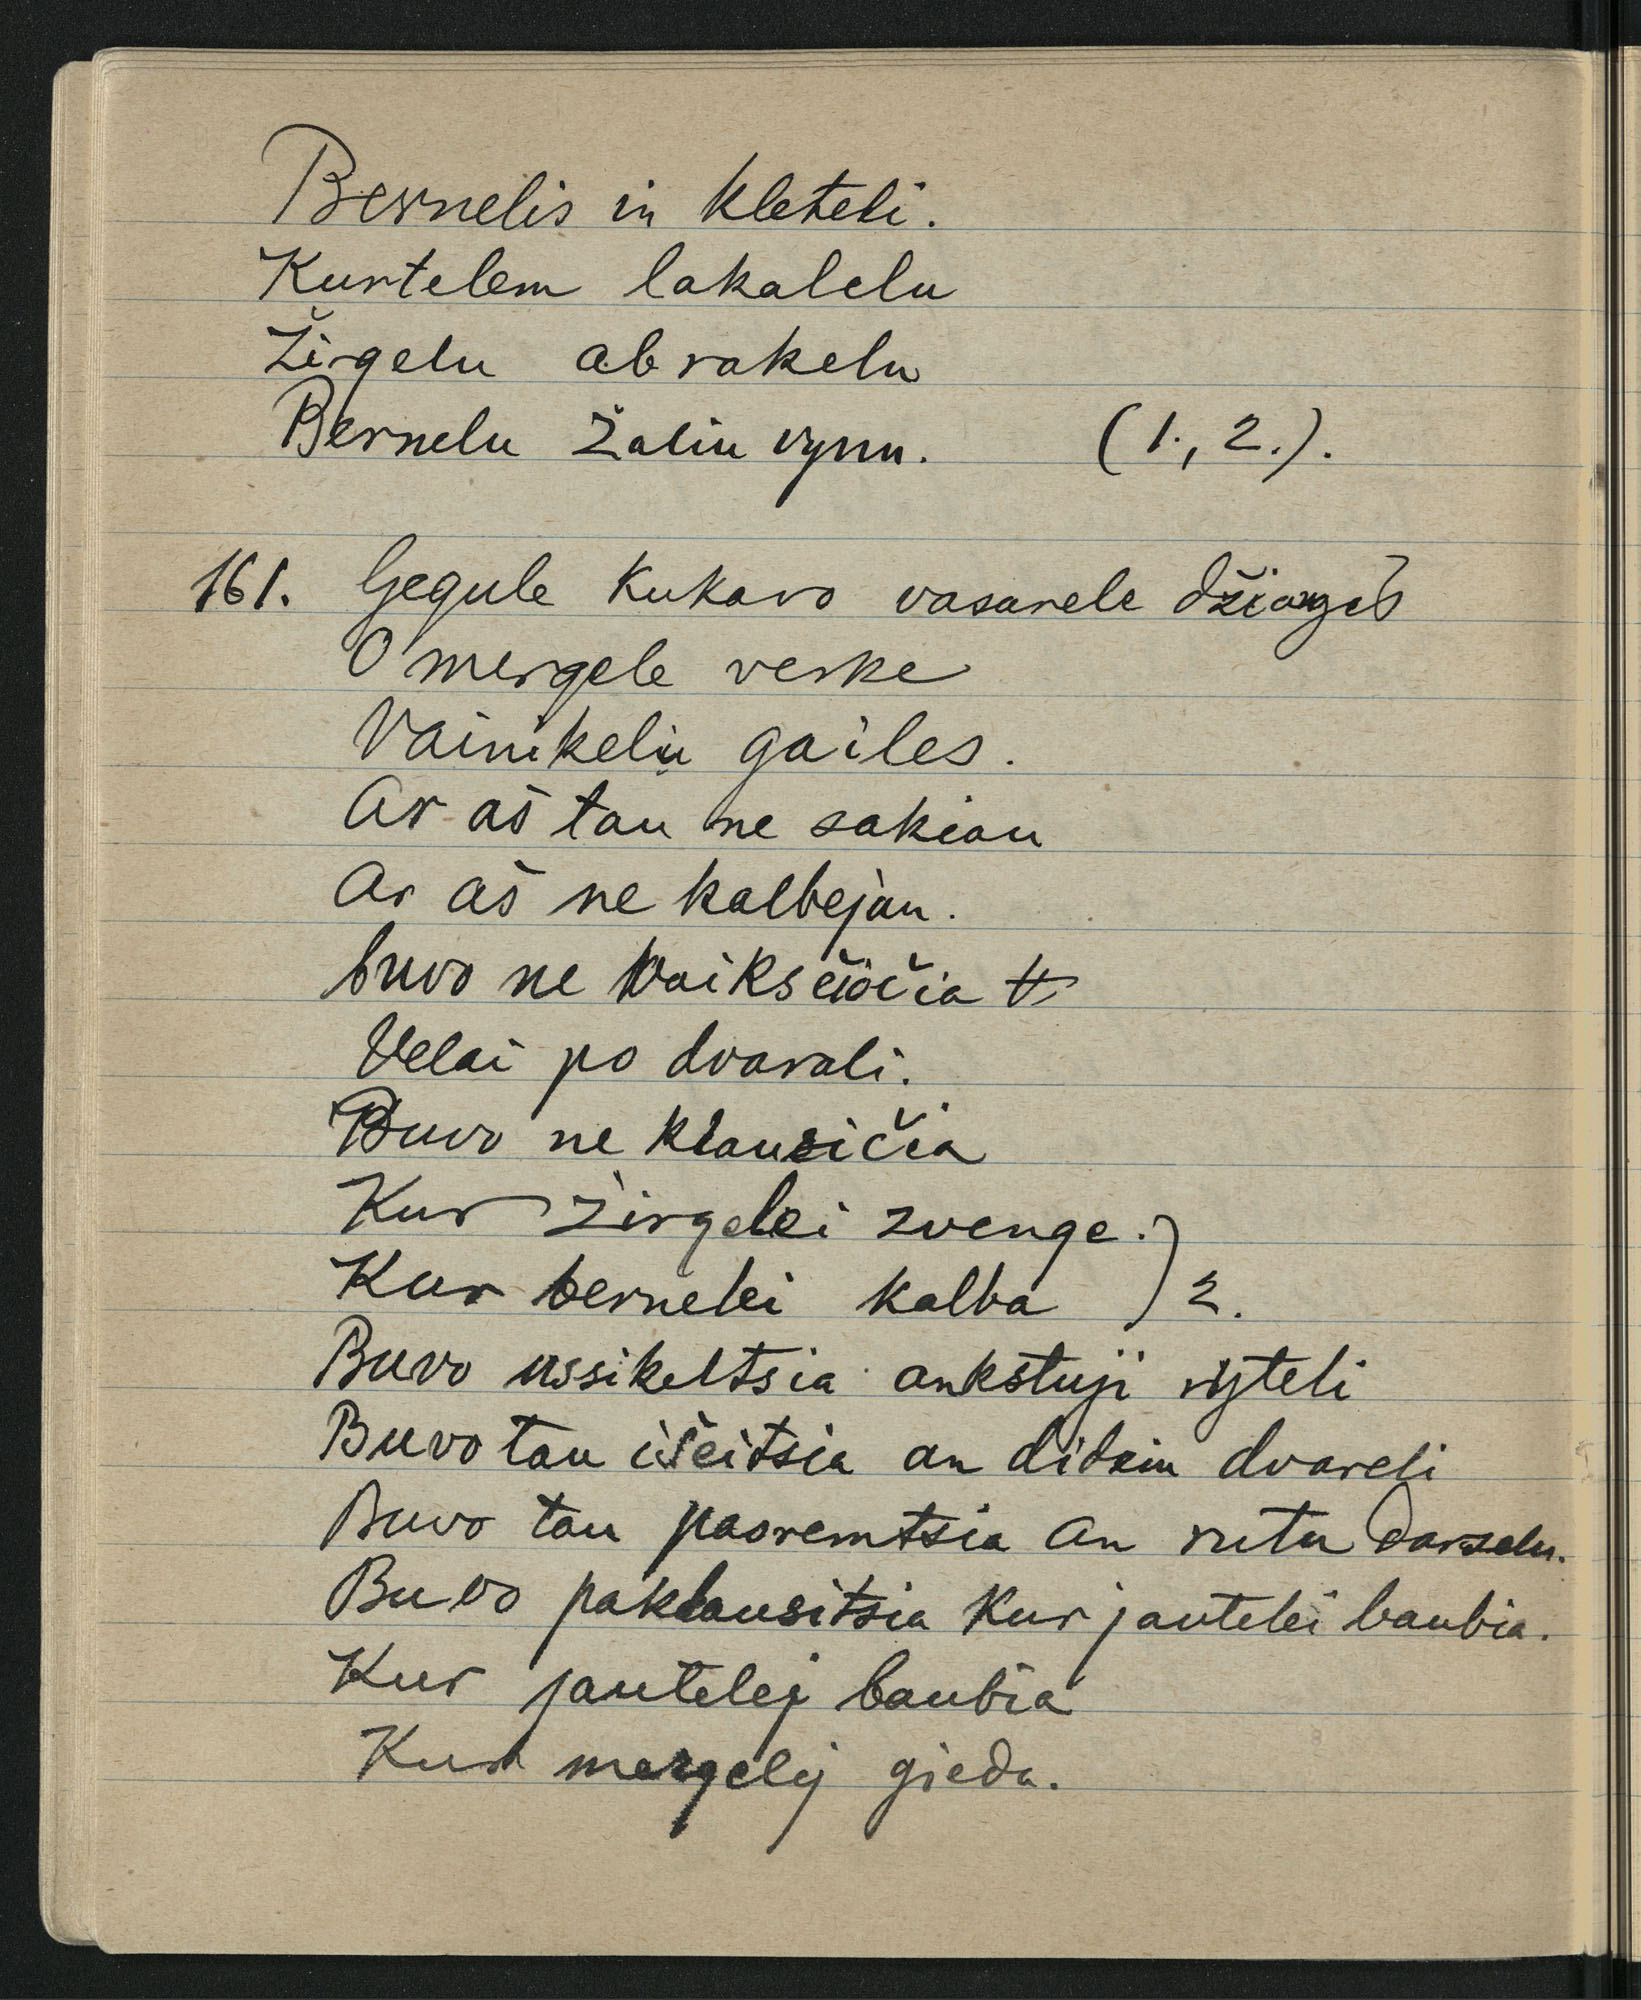 Bernelis in kleteli.
Kurtelem lakalelu
Žirgelu abrakelu
Bernelu žaliu vynu. (1., 2.).
161. Gegule kukavo vasarele džiauges
O mergele verke
Vainikeliu gailes.
Ar aš tau ne sakiau
Ar aš ne kalbejau.
buvo ne vaiksčiočia
Velai po dvarali.
Buvo ne klausičia
Kur žirgelei zvenge. )
Kur bernelei kalba ) 2.
Buvo ussikeltsia ankstuji ryteli
Buvo tau išeitsia an didziu dvareli
Buvo tau pasremtsia an rutu darzelu.
Buvo paklausitsia kur jautelei baubia.
Kur jautelej baubia
Kur mergelej gieda.